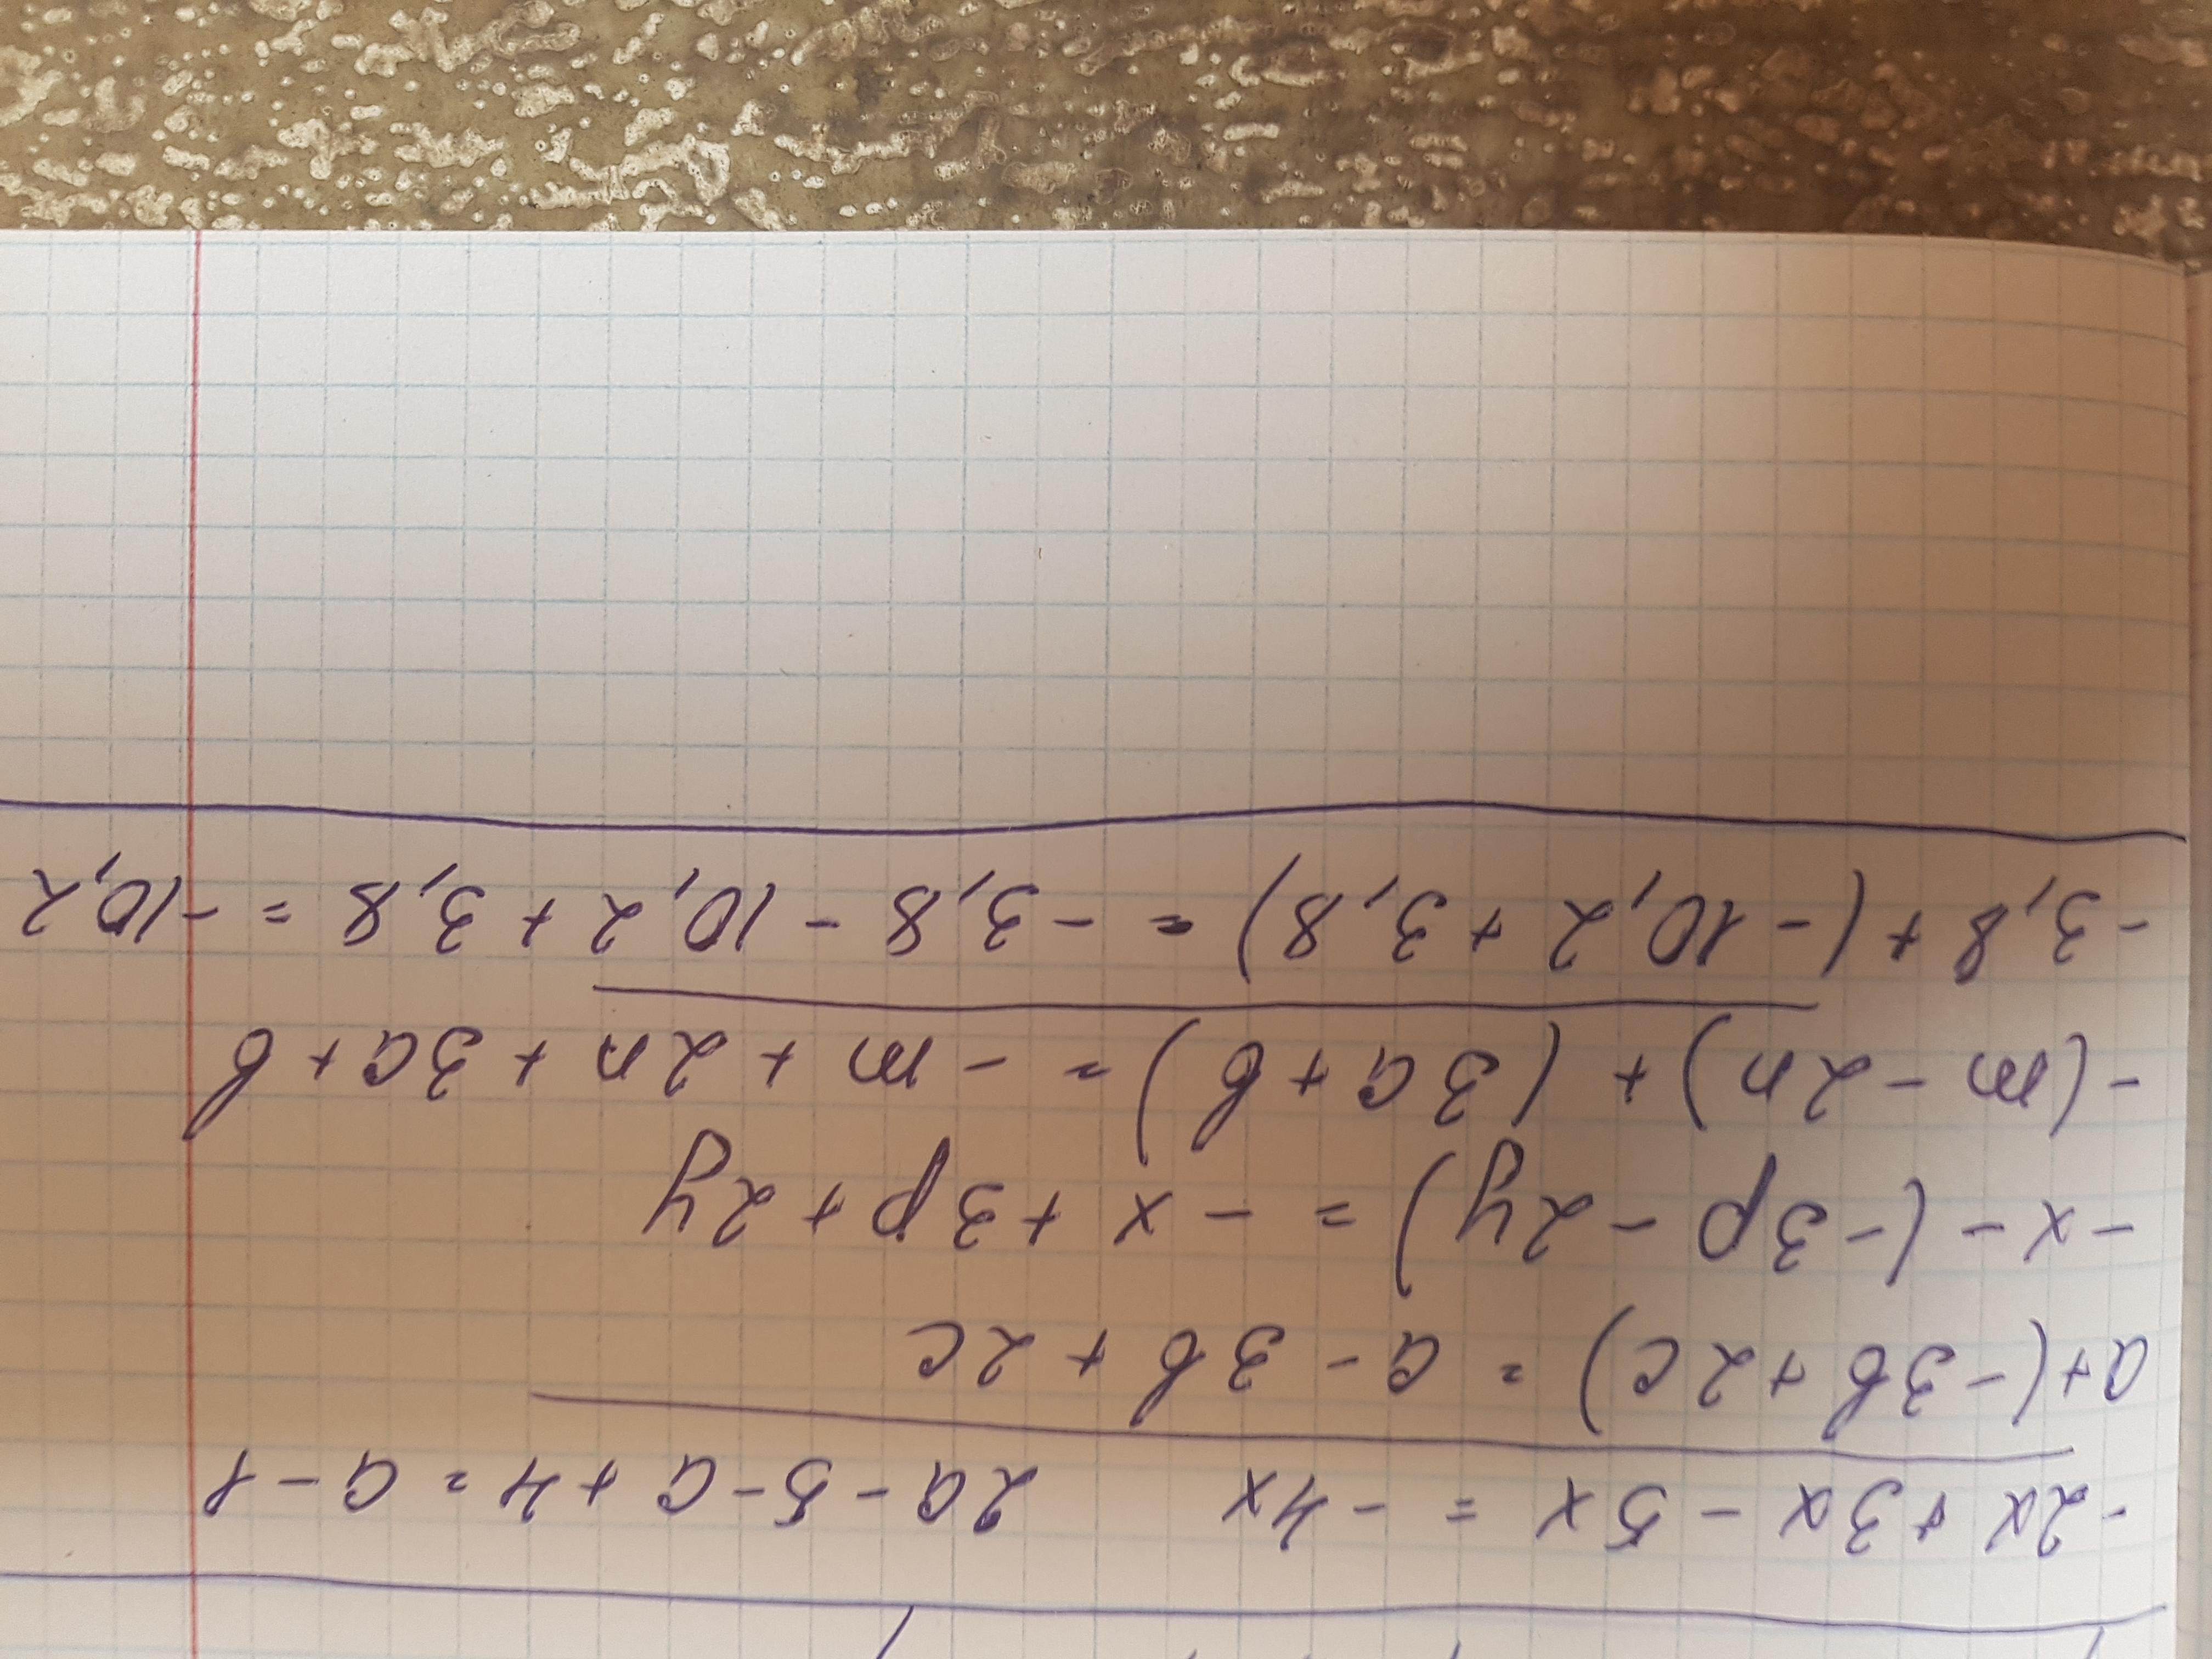 -2x + 3x - 5x = -4x 2a - 5 - a + 4 = a - 1
a + (-3b + 2c) = a - 3b + 2c
-x - (-3p - 2y) = -x + 3p + 2y
-(m - 2n) + (3a + b) = -m + 2n + 3a + b
-3,8 + (-10,2 + 3,8) = -3,8 - 10,2 + 3,8 = -10,2